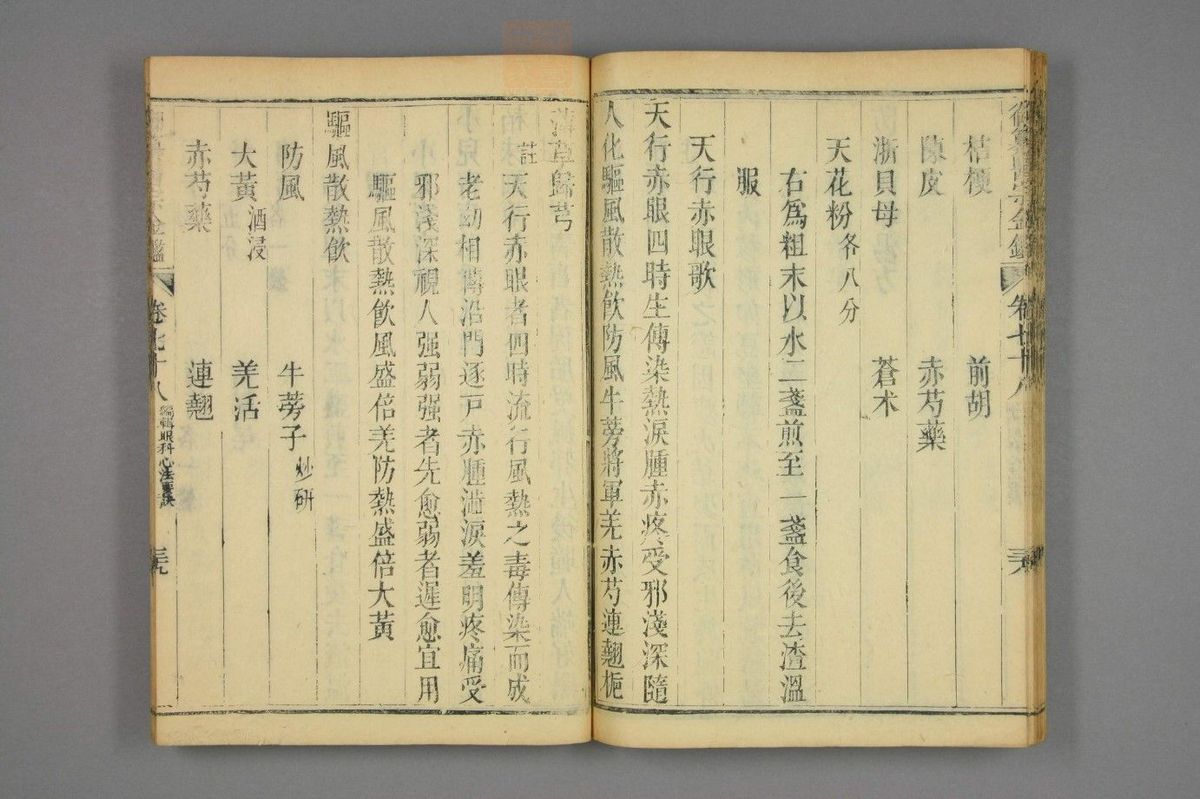 卷七十八
桔梗 前胡
陳皮 赤芍藥
浙貝母 蒼术
天花粉 各八分
右爲粗末以水二盞煎至一盞食後去渣溫
服
天行赤眼歌
天行赤眼四時生傳染熱淚腫赤疼受邪淺深隨
人化驅風散熱飲防風牛蒡將軍羌赤芍連翹梔
薄草歸芎
註 天行赤眼者四時流行風熱之毒傳染而成
老幼相傳沿門逐戶赤腫澁淚羞明疼痛受
邪淺深視人强弱强者先愈弱者遲愈宜用
驅風散熱飲風盛倍羌防熱盛倍大黃
驅風散熱飲
防風 牛蒡子 炒研
大黃 酒浸 羌活
赤芍藥 連翹
卷七十八 編輯眼科心法要訣 三九